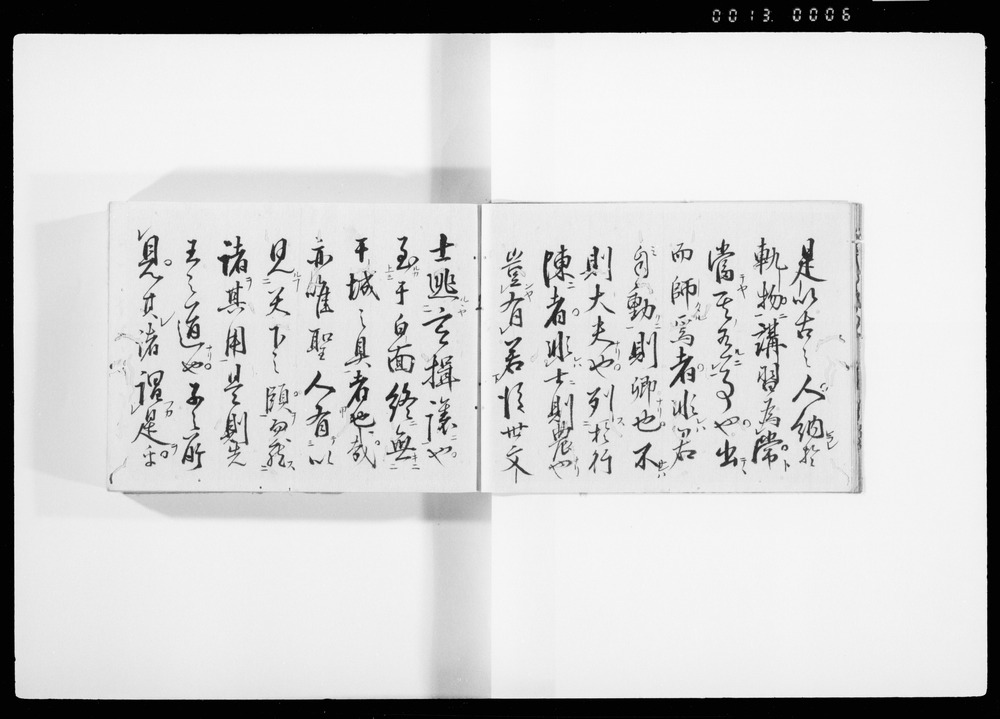 0013. 0006
是以古之人納於
軌物講習為常
當其有事也出
而師焉者非君
自動則卿也不
則大夫也列於行
陳者非士則農也
豈有若後世文
士
揖讓也
至于白面終無
干城之具者也哉
亦唯聖人有以
見天下之賾而
諸其用是則先
王之道也子之所
見其諸謂是乎